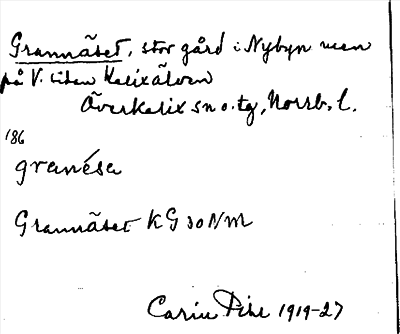 Grannäset, stor gård i Nybyn men
på V. sidan Kalixälven
Överkalix sn o. tg, Norrb. l.
186
granésa
Grannäset KG 30 NM
Carin Pihl 1919-27